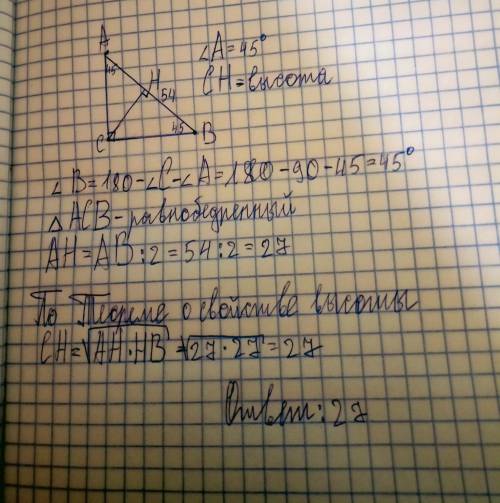 A
45
H
54
C
45
B
∠A=45°
CH=высота
∠B=180-∠C-∠A=180-90-45=45°
△ACB-равнобедренный
AH=AB:2=54:2=27
По Теореме о свойстве высоты
CH=√AH·HB=√27·27=27
Ответ:27